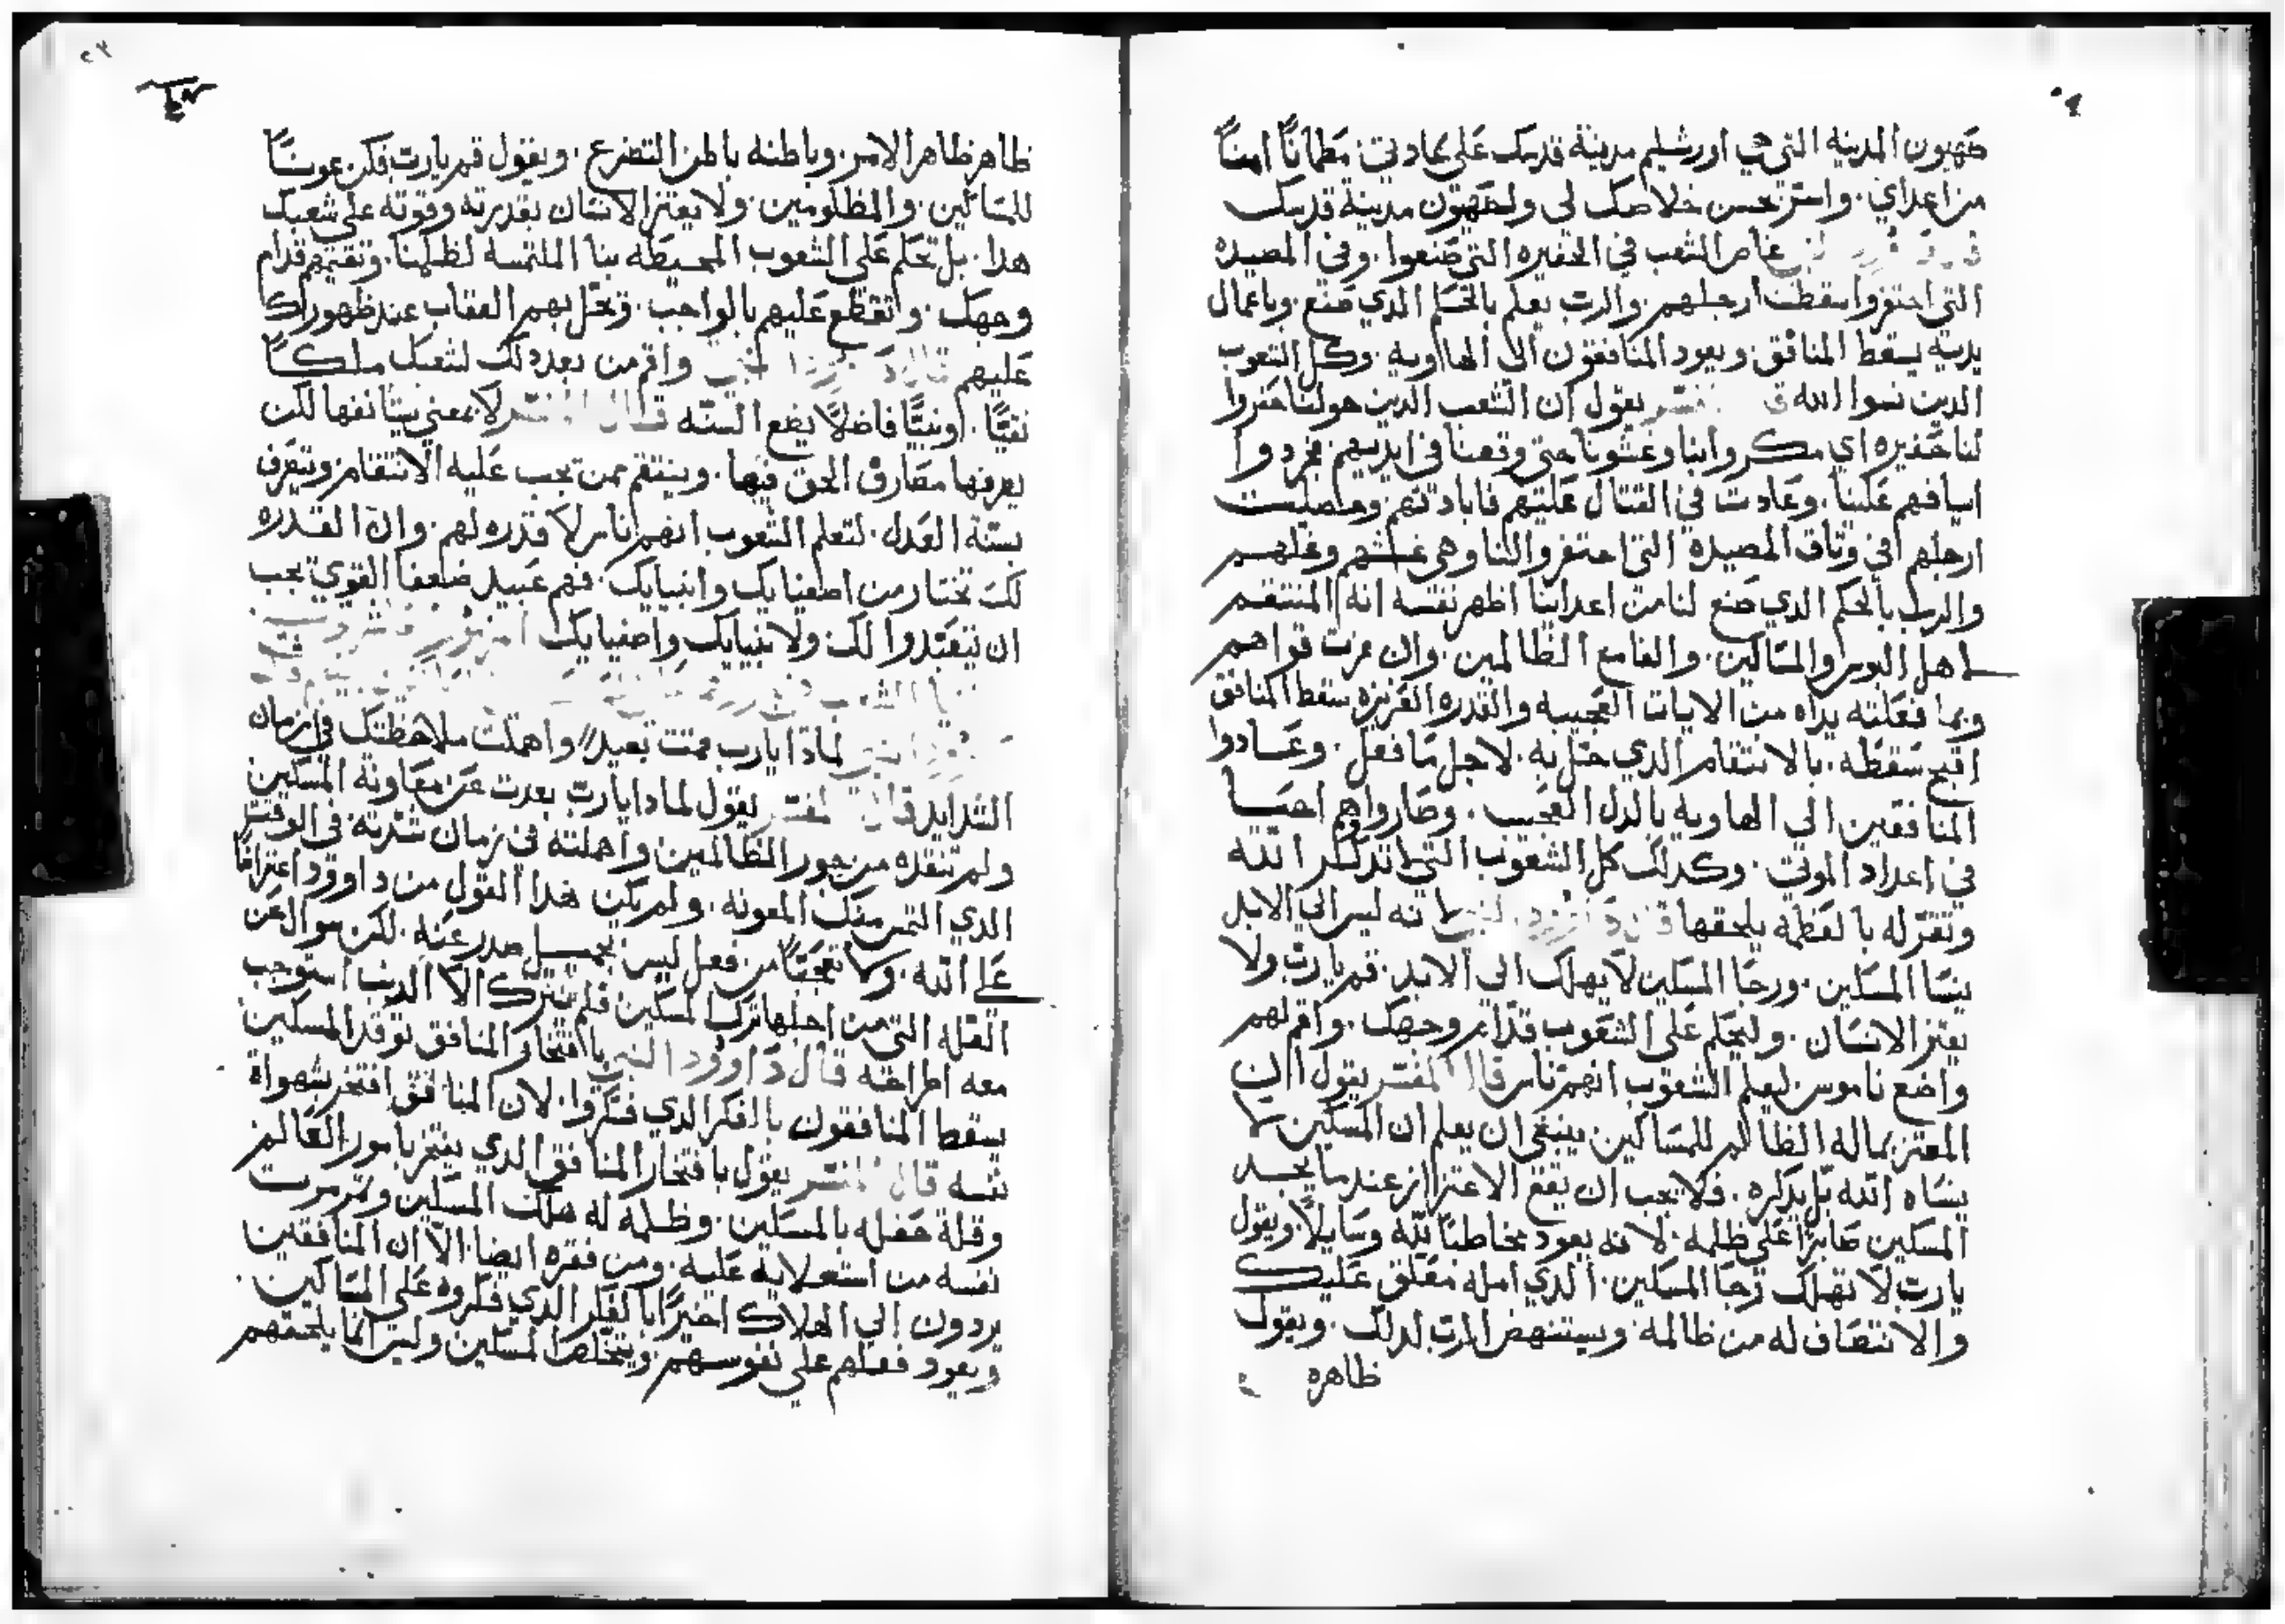 صهيون المدينه التي هي اورشليم مدينة قدسك على عادتي مطمانًا امنًا
من اعداي. واستر بحسن خلاصك لي ولصهيون مدينة قدسك
غاص الشعب في الحفيره التي صنعوا. وفي المصيده
التي احتفزوا سقطت ارجلهم. والرب يعلم بالحكم الذي صنع. وباعمال
يديه يسقط المنافق. ويعود المنافقون الى الهاويه. وكل الشعوب
الدين نسوا الله يقول ان الشعب الدين حولنا حفروا
لنا حفيره اي مكروا بنا وغشونا حتى وقعنا في ايديهم فجردوا
اسيافهم علينا. وعادت في القتال عليهم فابادتهم وحصلت
ارجلهم في وثاق المصيدة التي احتفروا لنا وهي غشهم وغلهم
والرب بالحكم الذي صنع لنا من اعداينا اظهر نفسه انه المنتقم
لاهل البوس والمساكين. والقامع الظالمين. وان عزت قواهم
وبما فعلته يداه من الايات العجيبه والقدره العزيزه سقط المنافق
اقبح سقطه. بالانتقام الذي حل به. لاجل ما فعل. وعادوا
المنافقين الي الهاويه بالدل العجيب. وصاروا وهم احيا
في اعداد الموتي. وكدلك كل الشعوب التي لا تدكر الله
وتقر له بالعظمه يلحقها قال داوود النبي لانه ليس الي الابد
ينسا المسكين. ورجا المسكين لا يهلك الى الابد. قم يارب ولا
يعتز الانسان. وليحكم على الشعوب قدام وجهك. واقم لهم
واضع ناموس ليعلم الشعوب انهم ناس قال المفسر يقول ان
المعتز بماله الظالم للمساكين ينبغي ان يعلم ان المسكين لا
ينساه الله بل يدكره. فلا يجب ان يقع الاعتزاز عندما يجد
المسكين صابرًا على ظلمه. لانه يعود مخاطبًا لله وسايلًا ويقول
يارب لا تهلك رجا المسكين. الذي امله معلق عليك
والانتصاف له من ظالمه. ويستنهض الرب لدلك. ويقول
ظاهره
ظاهر ظاهر الامر. وباطنه باطن التضرع. ويقول قم يارب فكن عونًا
للمساكين. والمظلومين. ولا يعتز الانسان بقدرته وقوته على شعبك
هدا. بل تحكم على الشعوب المحيطه بنا الملتمسه لظلمنا. وتقيمهم قدام
وجهك. وتقطع عليهم بالواجب. وتحل بهم العقاب عند ظهورك
عليهم قال داوود النبي واقم من بعد دلك لشعبك ملكًا
نقيًا. او نبيًا فاضلًا يضع السنه قال المفسر لا بمعني يستانفها لكن
يعرفها مصارف الحق فيها. وينتقم ممن تجب عليه الانتقام ويتعرف
بسنة العدل. لتعلم الشعوب انهم ناس لا قدره لهم. وان القدره
لك تختار من اصفيايك وانبيايك. فهم عبيد ضعفا القوي تجب
ان تتعبدوا لك ولانبيايك واصفيايك
لمادا يارب قمت بعيد واهملت ملاحظتك في زمان
الشدايد قال المفسر يقول لمادا يارب بعدت عن معاونة المسكين
ولم تنقده من جور الظالمين واهملته في زمان شدته في الوقت
الذي التمس منك المعونه. ولم يكن هدا القول من داوود اعتراضًا
على الله. ولا تعجبًا من فعل ليس بجميل صدر عنه. لكن سوال عن
العله التي من اجلها ترك المسكين فلم تترك الا الدنب استوجب
معه اطراحه قال داوود النبي بافتخار المنافق توقد المسكين
يسقط المنافقون بالفكر الدي فكروا. لان المنافق افتخر بشهواة
نفسه قال المفسر يقول بافتخار المنافق الدي يعتز بامور العالم
وقلة حفله بالمسكين. وظلمه له هلك المسكين وتمرمرت
نفسه من استعلايه عليه. ومن فقره ايضا. الا ان المنافقين
يردون الي الهلاك اخيرًا بالفكر الدي فكروه على المساكين.
ويعود فعلهم على نفوسهم ويتخلص المسكين وليس انما يلحقهم